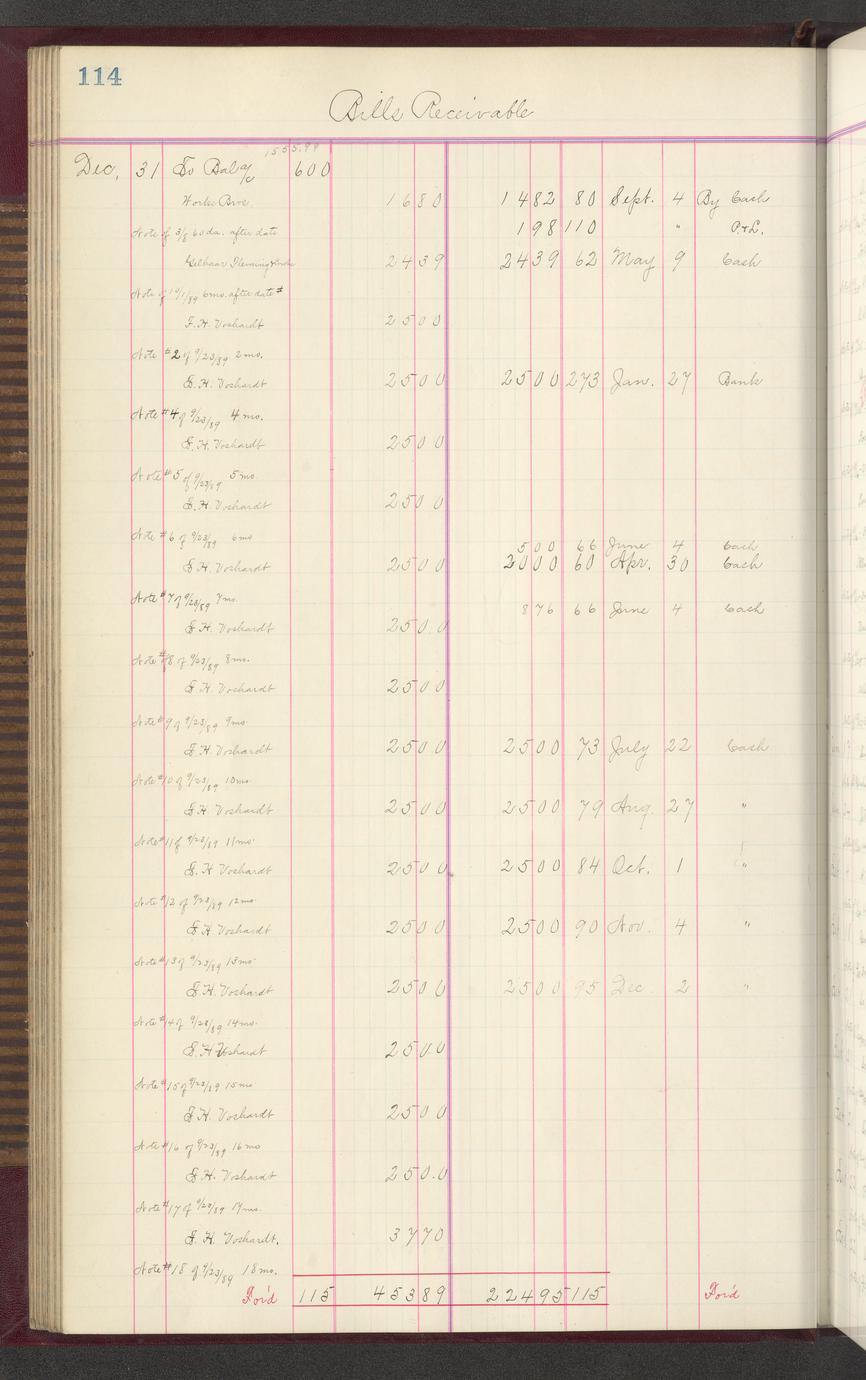 114
Bills Receivable
1555.99
Dec. 31 To Bal a/c 600
1680 1482 80 Sept. 4 By Cash
Note of 3/8 60 da. after date 198 110 " P.&L.
2439 2439 62 May 9 Cash
Note of 10/1/89 6 mo. after date #
F. H. Voshardt 2500
Note #2 of 9/23/89 2 mo.
F. H. Voshardt 2500 2500 273 Jan. 27 Bank
Note #4 of 9/23/89 4 mo.
F. H. Voshardt 2500
Note #5 of 9/23/89 5 mo.
F. H. Voshardt 2500
Note #6 of 9/23/89 6 mo
500 66 June 4 Cash
F. H. Voshardt 2500 2000 60 Apr. 30 Cash
Note #7 of 9/23/89 7 mo.
876 66 June 4 Cash
F. H. Voshardt 2500
Note #8 of 9/23/89 8 mo.
F. H. Voshardt 2500
Note #9 of 9/23/89 9 mo.
F. H. Voshardt 2500 2500 73 July 22 Cash
Note #10 of 9/23/89 10 mo
F. H. Voshardt 2500 2500 79 Aug. 27 "
Note #11 of 9/23/89 11 mo.
F. H. Voshardt 2500 2500 84 Oct. 1 "
Note #12 of 9/23/89 12 mo.
F. H. Voshardt 2500 2500 90 Nov. 4 "
Note #13 of 9/23/89 13 mo.
F. H. Voshardt 2500 2500 95 Dec. 2 "
Note #14 of 9/23/89 14 mo.
F. H. Voshardt 2500
Note #15 of 9/23/89 15 mo
F. H. Voshardt 2500
Note #16 of 9/23/89 16 mo
F. H. Voshardt 2500
Note #17 of 9/23/89 17 mo.
F. H. Voshardt. 3770
Note #18 of 9/23/89 18 mo.
For'd 115 45389 22495 115 For'd